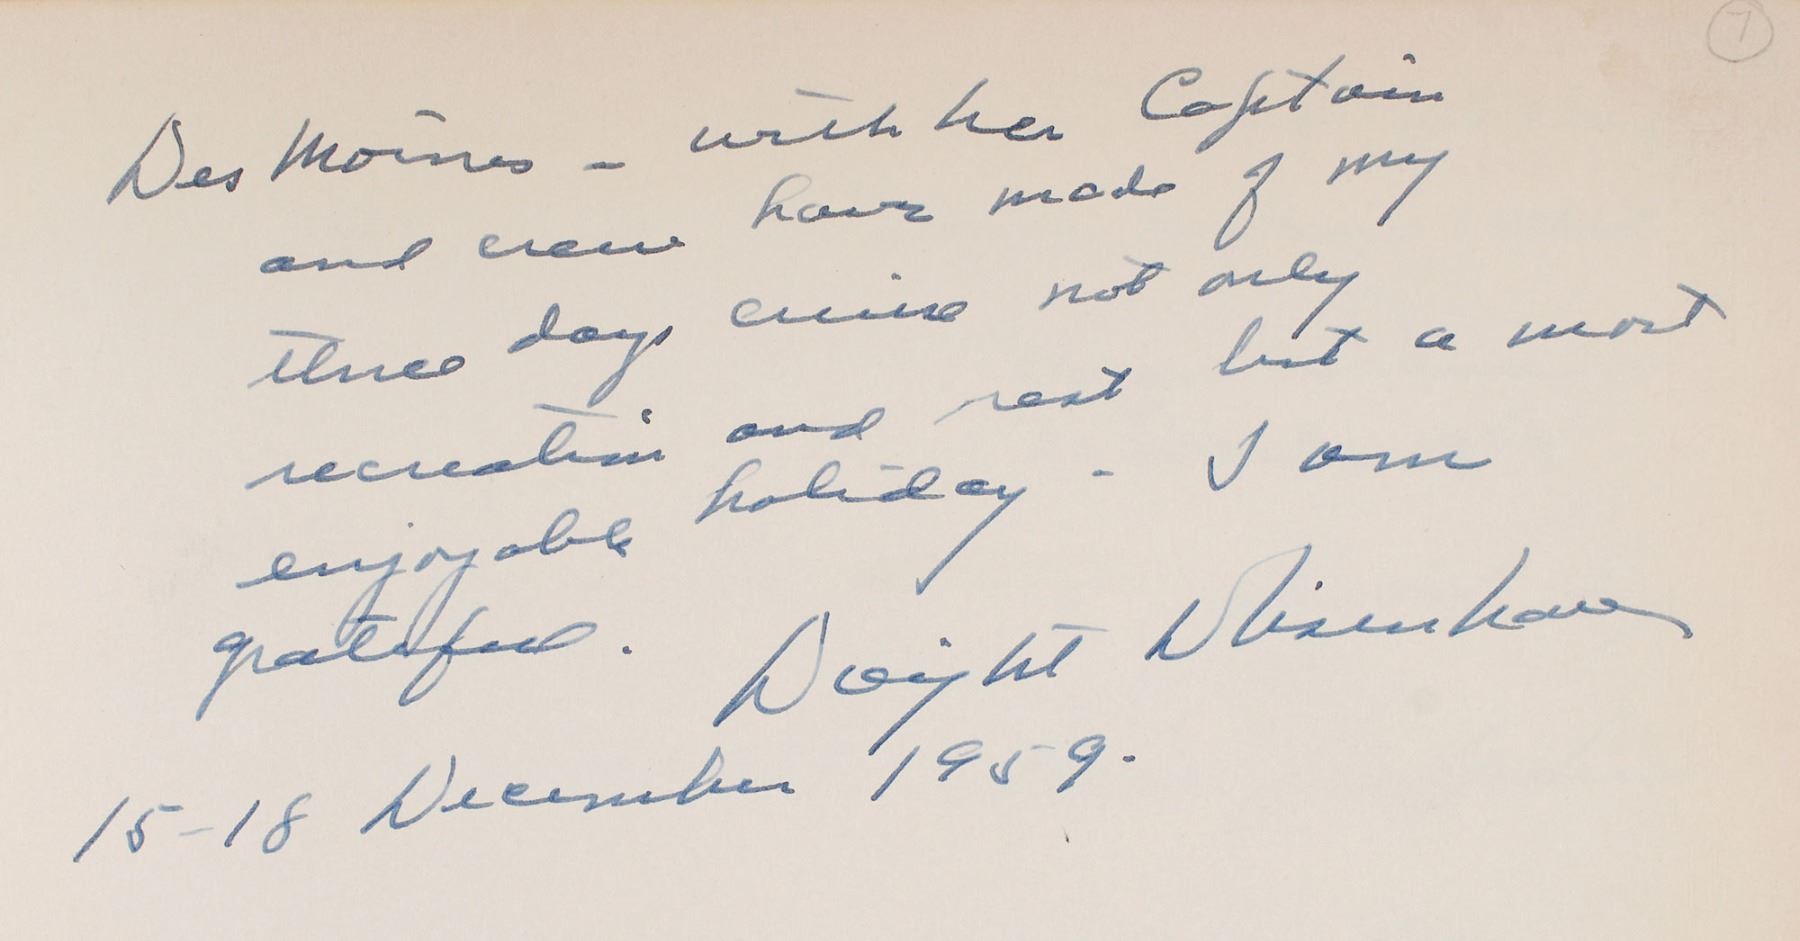 7
Des Moines - with her Captain
and crew have made of my
three days cruise not only
recreation and rest but a most
enjoyable holiday - I am
grateful.
Dwight D Eisenhower
15-18 December 1959.